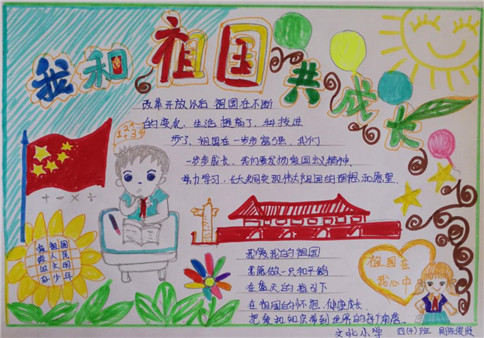 我和祖国共成长
改革开放以后 祖国在不断
的变化，生活提高了，科技进
步了，祖国在一步步富强，我们
一步步成长，我们要发扬爱国主义精神，
努力学习，长大去实现伟大祖国的理想和愿望。
+ - × ÷
我爱我的祖国
我愿做一只和平鸽
在蓝天的指引下
在祖国的怀抱，健康成长
祖国在
我心中
文化小学 四(4)班